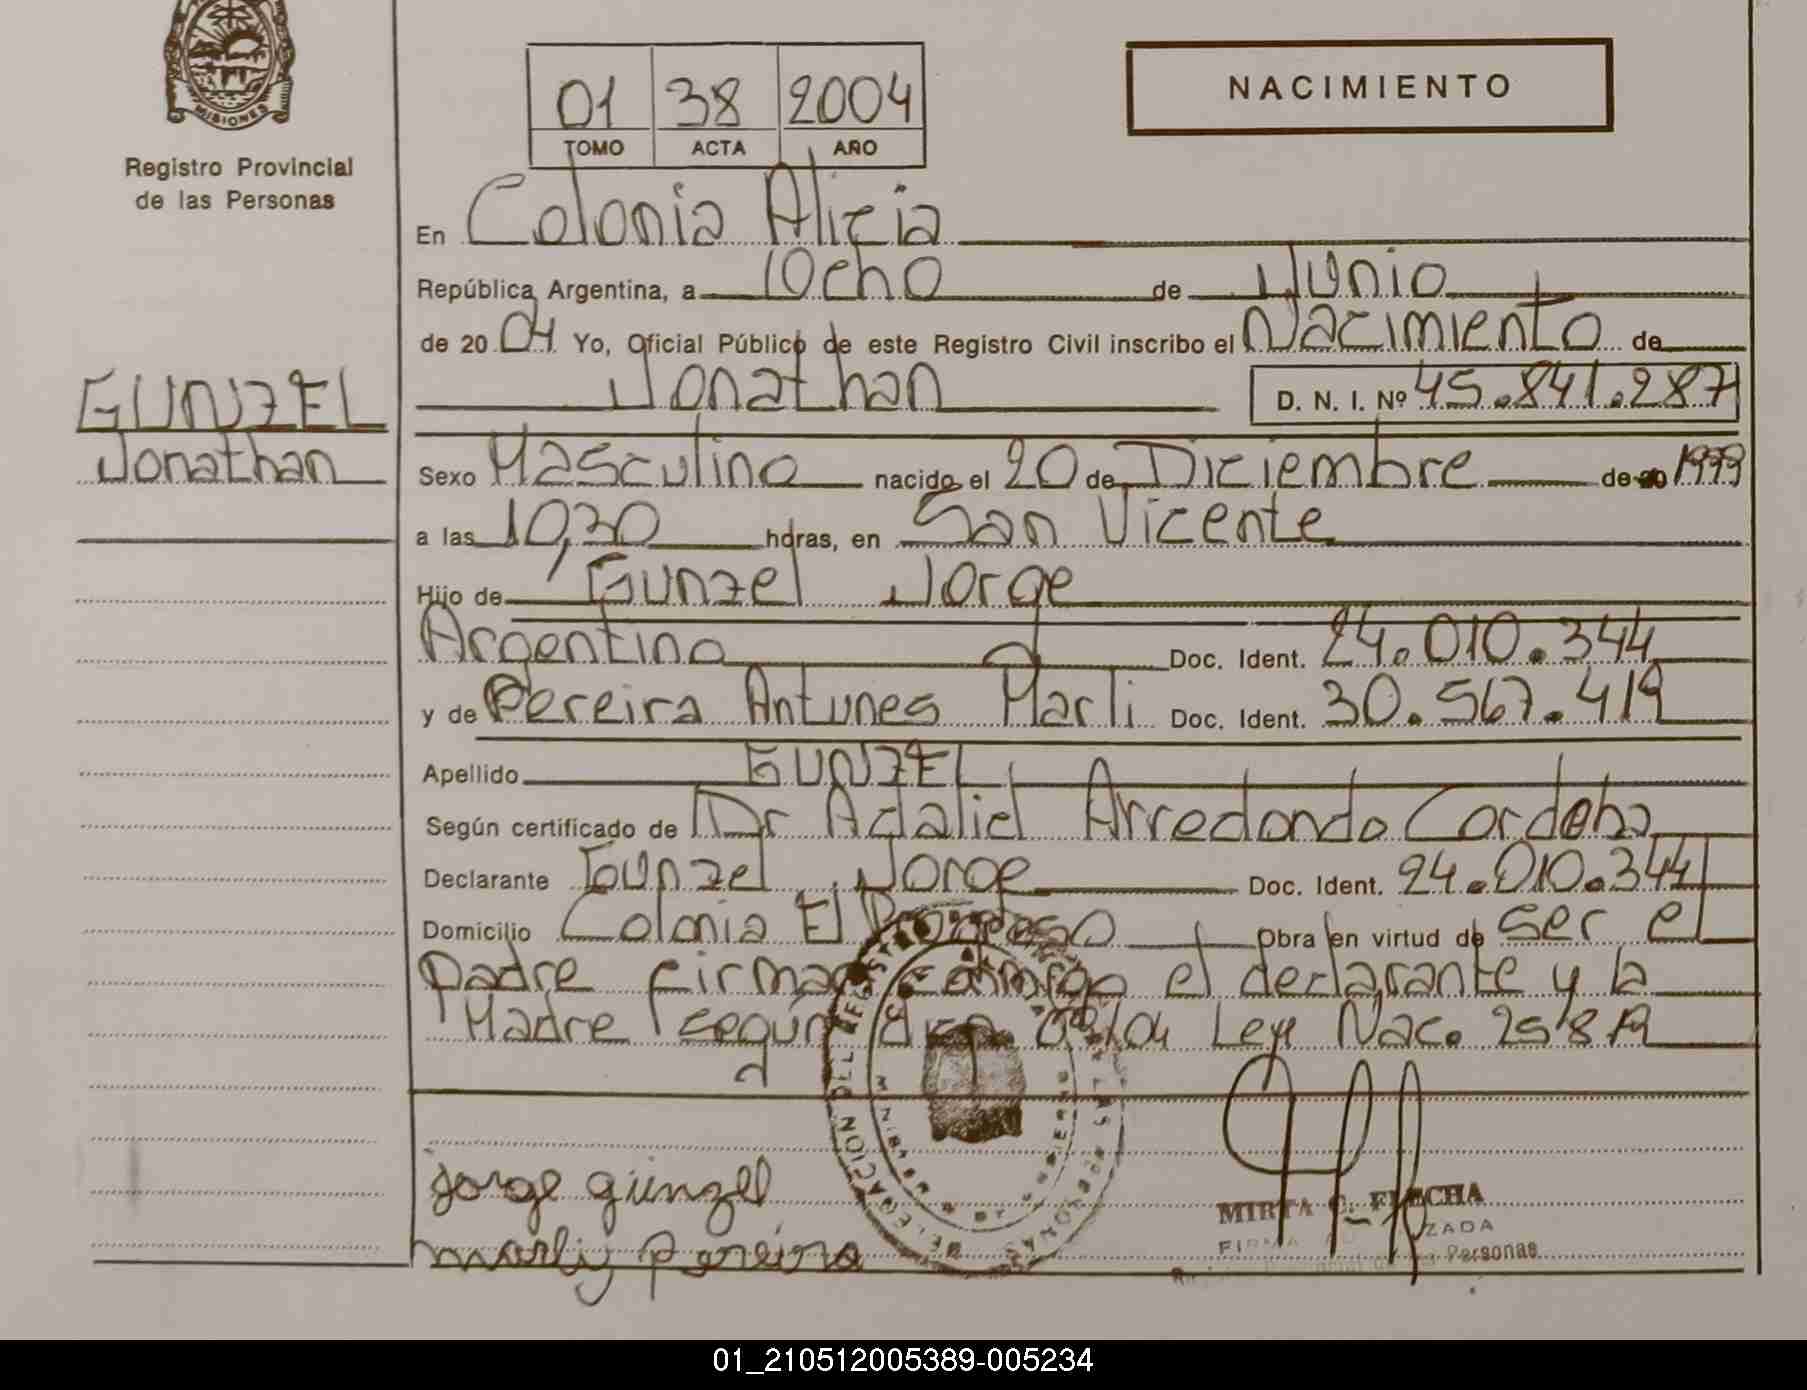 MISIONES
Registro Provincial
de las Personas
GUNZEL
Jonathan
01 38 2004
TOMO ACTA AÑO
NACIMIENTO
En Colonia Alicia
República Argentina, a Ocho de Junio
de 20 04 Yo, Oficial Público de este Registro Civil inscribo el Nacimiento de
Jonathan D. N. I. Nº 45.841.287
Sexo Masculino nacido el 20 de Diciembre de 1999
a las 10,30 horas, en San Vicente
Hijo de Gunzel Jorge
Argentino Doc. Ident. 24.010.344
y de Pereira Antunes Marli Doc. Ident. 30.567.419
Apellido GUNZEL
Según certificado de Dr Adalid Arredondo Cordoba
Declarante Gunzel Jorge Doc. Ident. 24.010.344
Domicilio Colonia El Progreso Obra en virtud de ser el
padre firman conmigo el declarante y la
Madre según 08/04 Ley Nac. 25819
jorge günzel
marly pereira
MIRTA C. FLECHA
FIRMA AUTORIZADA
Personas
01_210512005389-005234